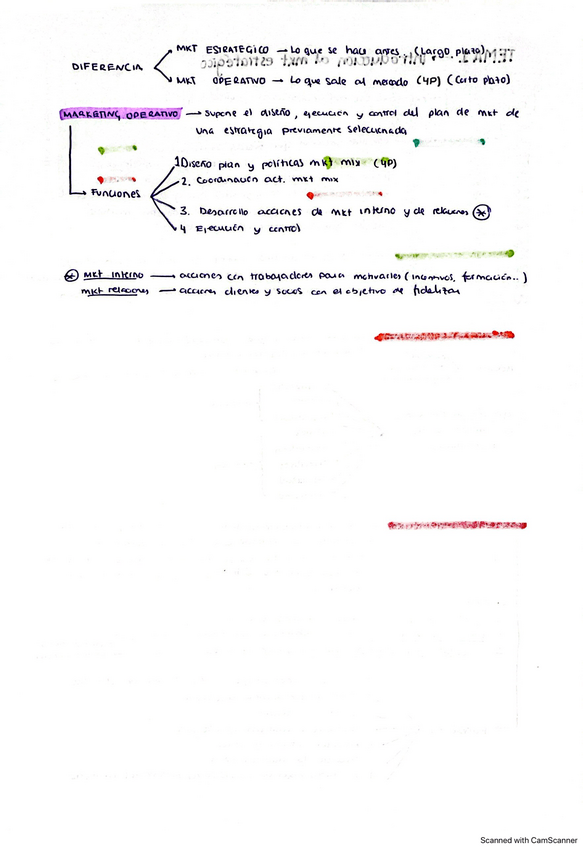 MKT ESTRATEGICO → Lo que se hace antes (Largo plazo)
DIFERENCIA
MKT OPERATIVO → Lo que sale al mercado (4P) (Corto plazo)
MARKETING OPERATIVO → Supone el diseño, ejecución y control del plan de mkt de
una estrategia previamente seleccionada
1 Diseño plan y políticas mkt mix (4P)
2. Coordinación act. mkt mix
→ Funciones
3. Desarrollo acciones de mkt interno y de relaciones *
4 Ejecución y control
* mkt interno → acciones con trabajadores para motivarles (incentivos, formación..)
mkt relaciones → acciones clientes y socios con el objetivo de fidelizar
Scanned with CamScanner